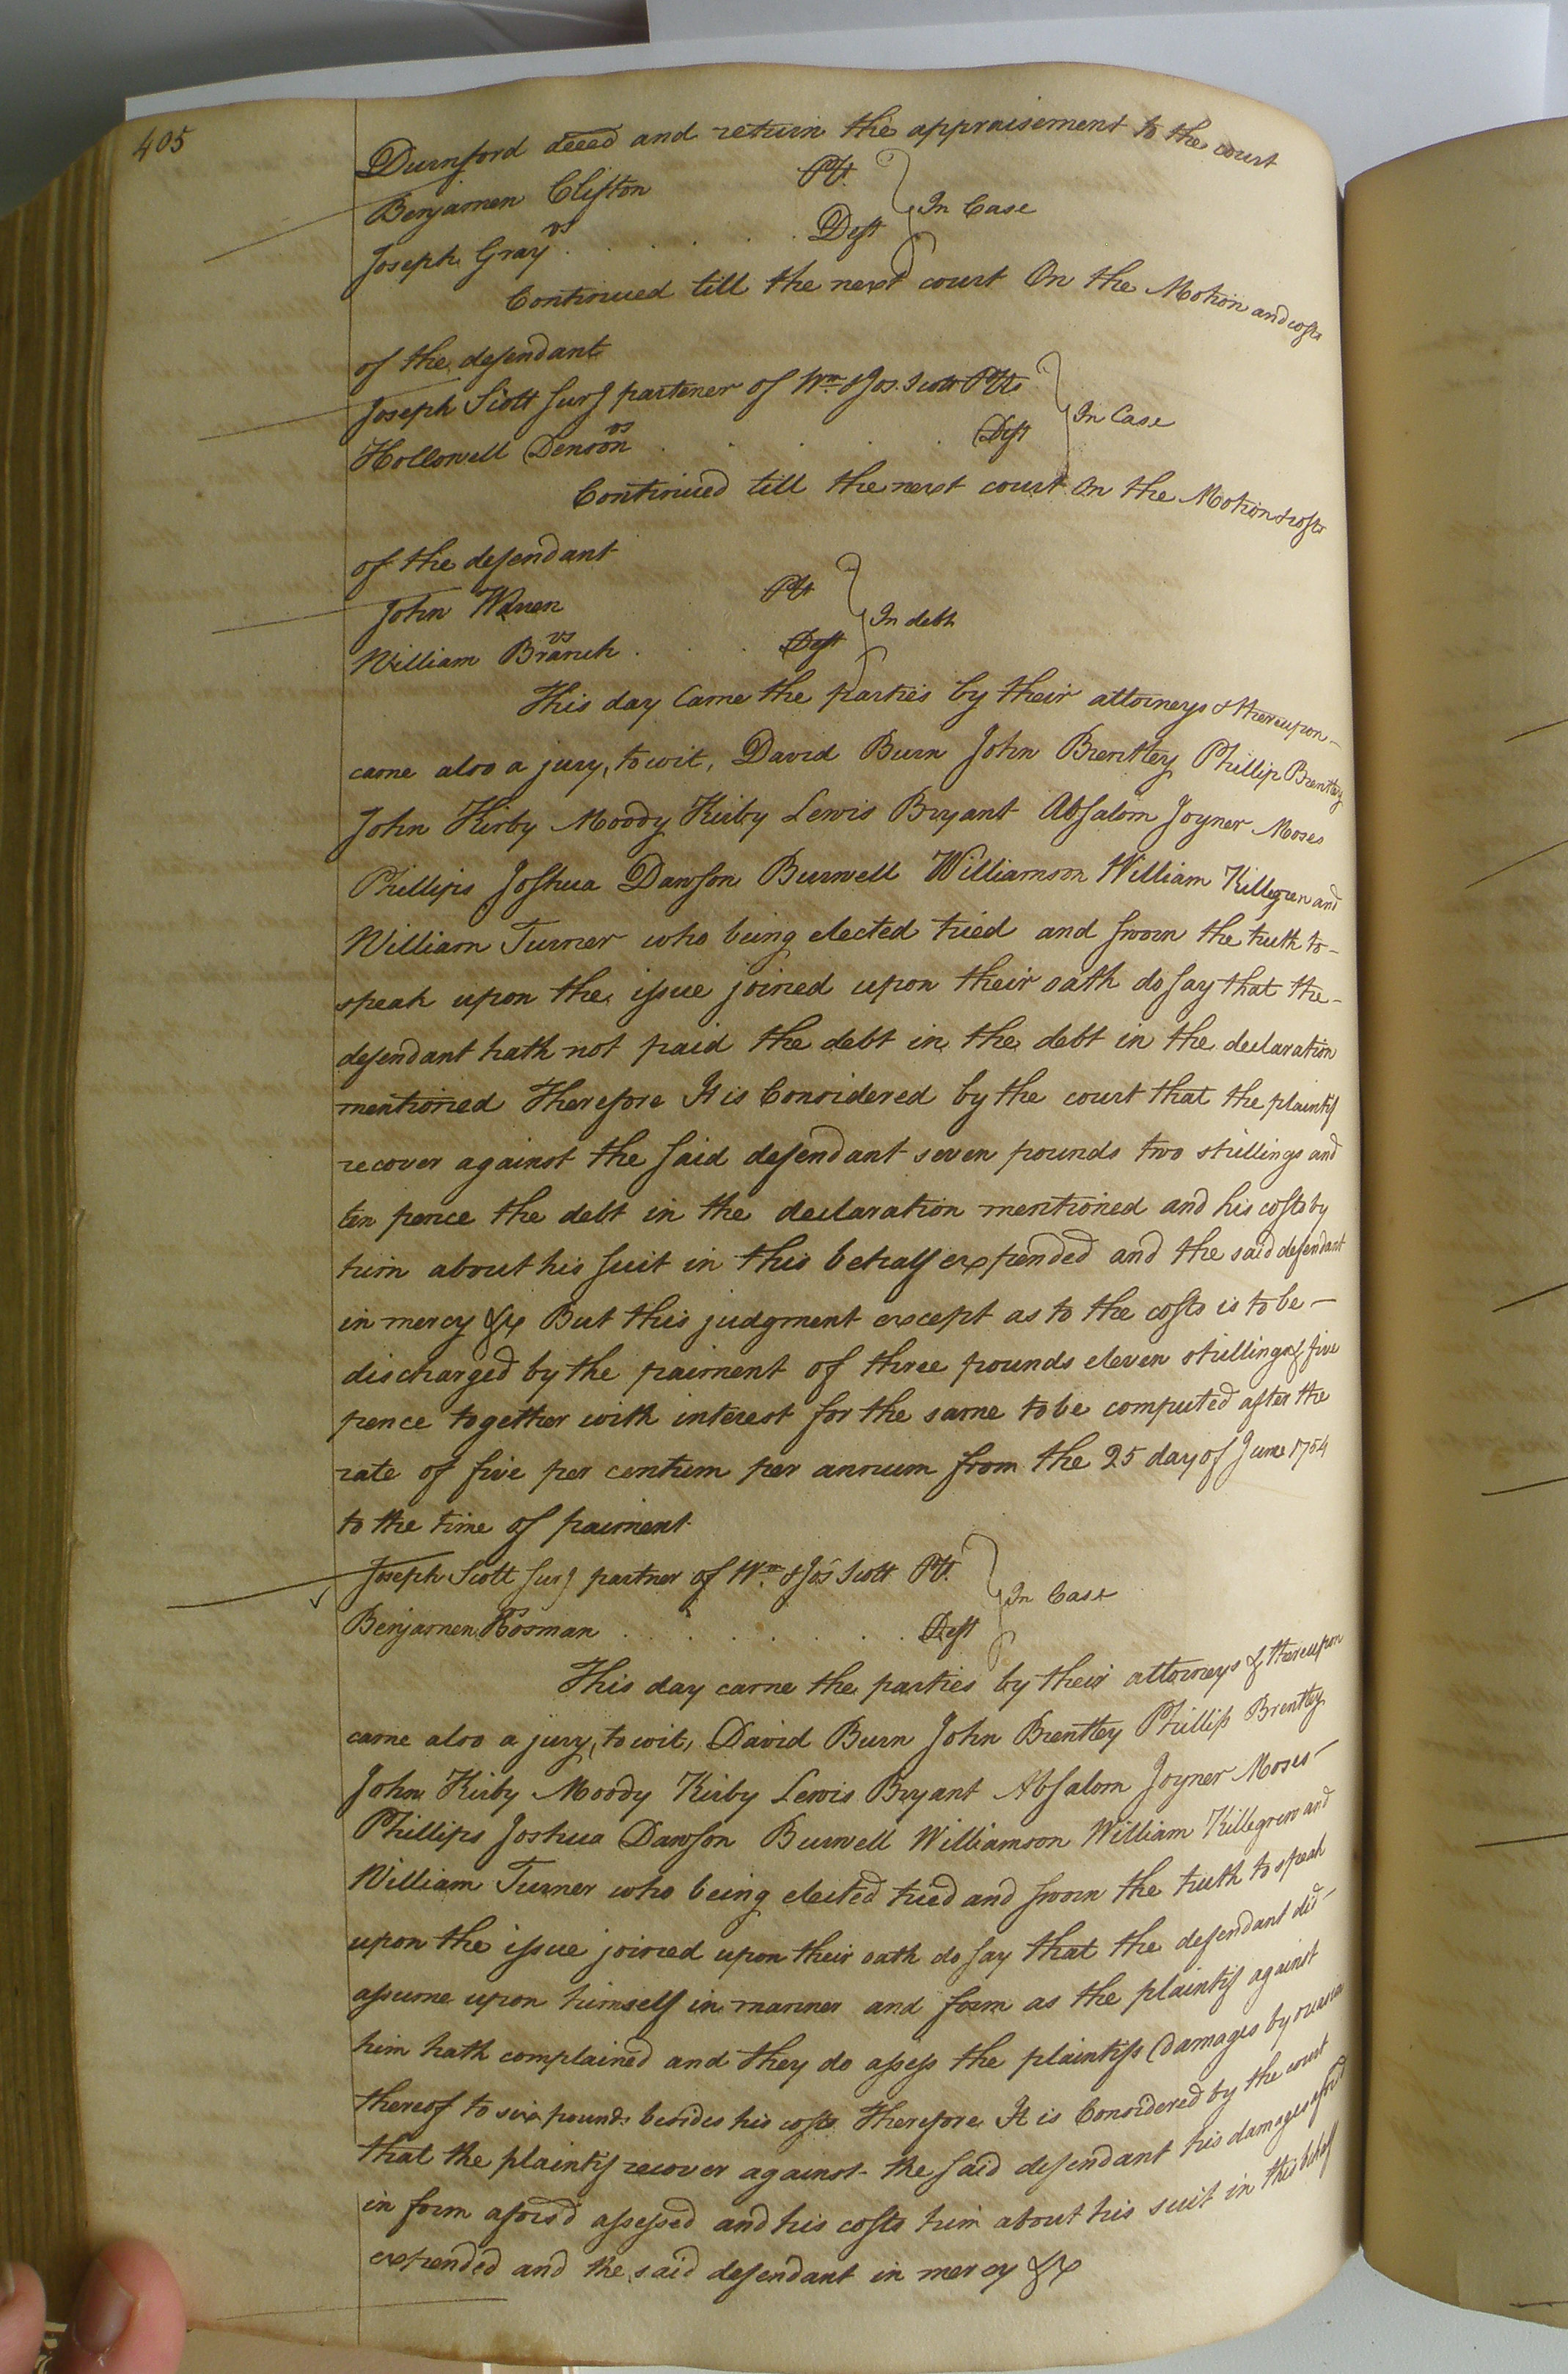 405
Durnford deced and return the appraisement to the court
Benjamen Clifton Plt.
vs In Case
Joseph Gray Deft
Continued till the next court On the Motion and costs
of the defendant
Joseph Scott surg partener of Wm & Jos. Scott Plts
vs In Case
Hollowell Denson Deft
Continued till the next court On the Motion & costs
of the defendant
John Plt
vs In debt
William Branch Deft
This day Came the parties by their attorneys & thereupon
came also a jury, to wit, David Burn John Brentley Phillip Brentley
John Kirby Moody Kirby Lewis Bryant Absalom Joyner Moses
Phillips Joshua Dawson Burwell Williamson William Killegrew and
William Turner who being elected tried and sworn the truth to
speak upon the issue joined upon their oath do say that the
defendant hath not paid the debt in the debt in the declaration
mentioned Therefore It is Considered by the court that the plaintif
recover against the said defendant seven pounds two shillings and
ten pence the debt in the declaration mentioned and his costs by
him about his suit in this behalf expended and the said defendant
in mercy &c But this judgment except as to the costs is to be
discharged by the paiment of three pounds eleven shillings & five
pence together with interest for the same to be computed after the
rate of five per centum per annum from the 25 day of June 1784
to the time of paiment
Joseph Scott surg partner of Wm & Jos Scott Plt.
vs In Case
Benjamen Deft
This day came the parties by their attorneys & thereupon
came also a jury, to wit, David Burn John Brentley Phillip Brentley
John Kirby Moody Kirby Lewis Bryant Absalom Joyner Moses
Phillips Joshua Dawson Burwell Williamson William Killegrew and
William Turner who being elected tried and sworn the truth to speak
upon the issue joined upon their oath do say that the defendant did
assume upon himself in manner and form as the plaintif against
him hath complained and they do assess the plaintifs damages by reason
thereof to six pounds besides his costs Therefore It is Considered by the court
that the plaintif recover against the said defendant his damages aforsd
in form aforsd assessed and his costs him about his suit in this behalf
expended and the said defendant in mercy &c